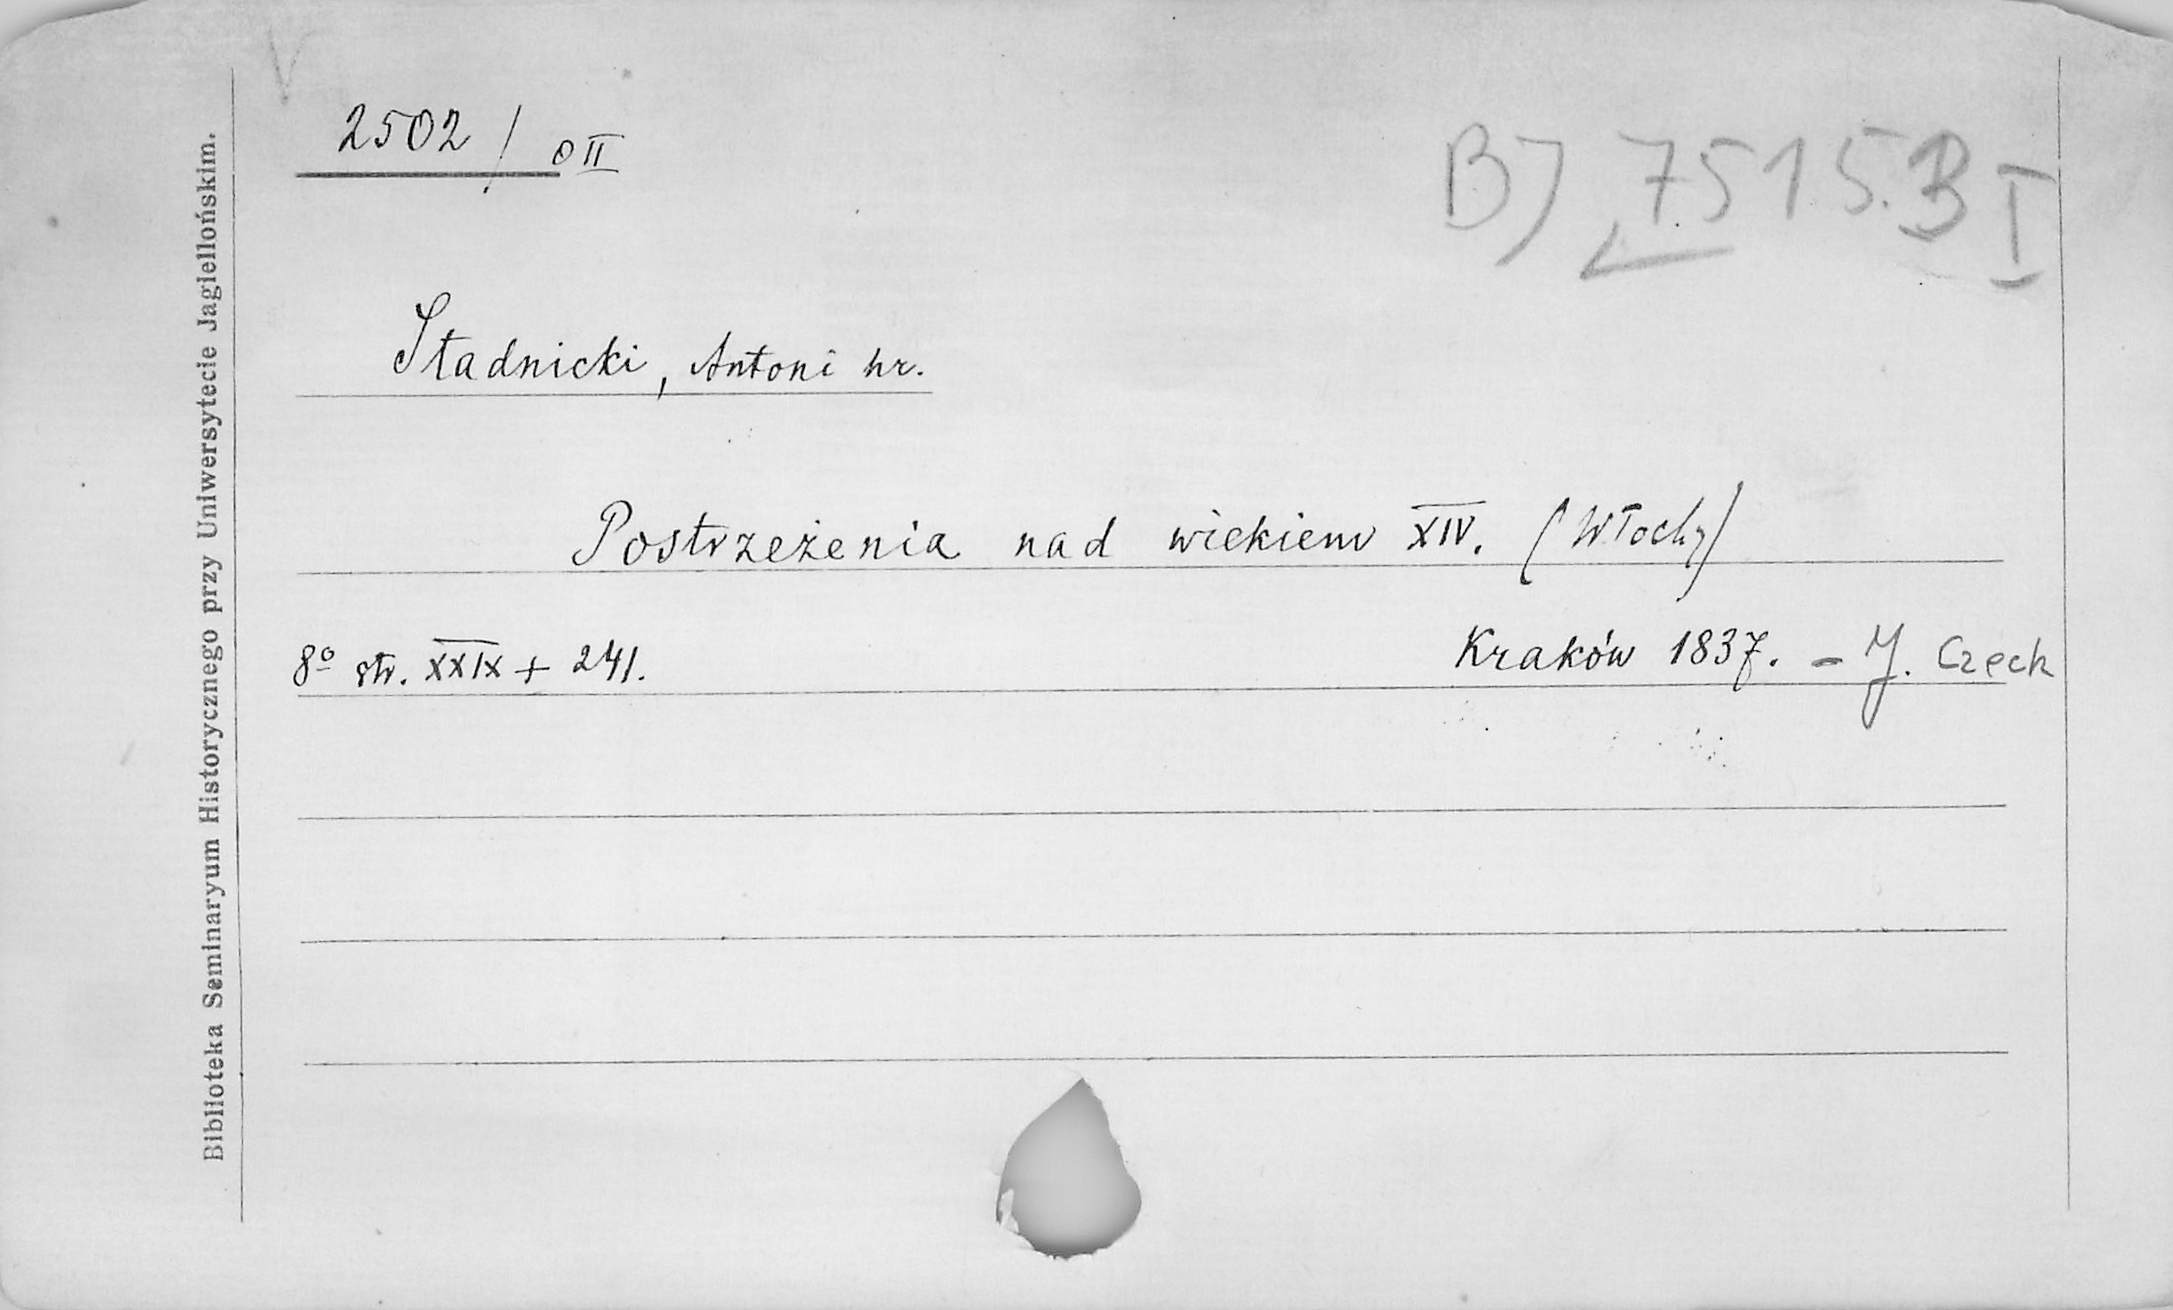 2502 / o II
B) 7515. B I
Stadnicki, Antoni hr.
Postrzeżenia nad wiekiem XIV. (Włochy)
8º str. XXIX + 241.
Kraków 1837. - J. Czech
Biblioteka Seminaryum Historycznego przy Uniwersytecie Jagiellońskim.